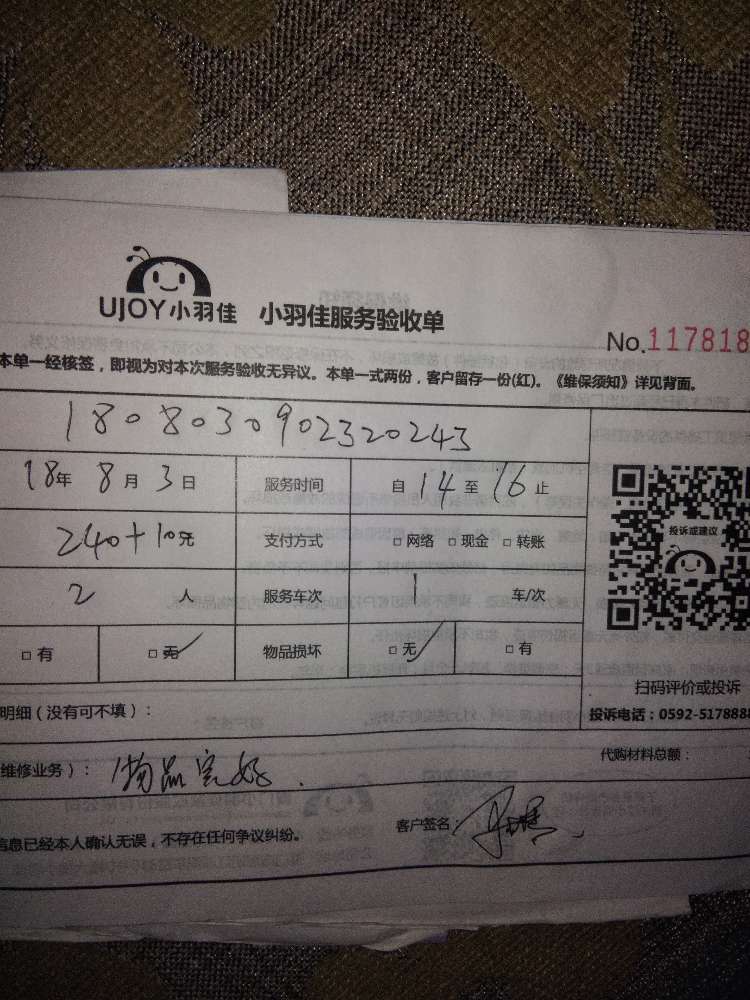 UJOY小羽佳 小羽佳服务验收单
No.117818
本单一经核签，即视为对本次服务验收无异议。本单一式两份，客户留存一份(红)。《维保须知》详见背面。
1808030902320243
18年 8月 3日 服务时间 自 14 至 16 止
投诉或建议
240+10元 支付方式 □ 网络 □ 现金 □ 转账
2 人 服务车次 1 车/次
□ 有 □ 无 物品损坏 □ 无 □ 有
扫码评价或投诉
明细（没有可不填）：
投诉电话：0592-5178888
维修业务）： 物品完好.
代购材料总额：
信息已经本人确认无误，不存在任何争议纠纷。
客户签名：